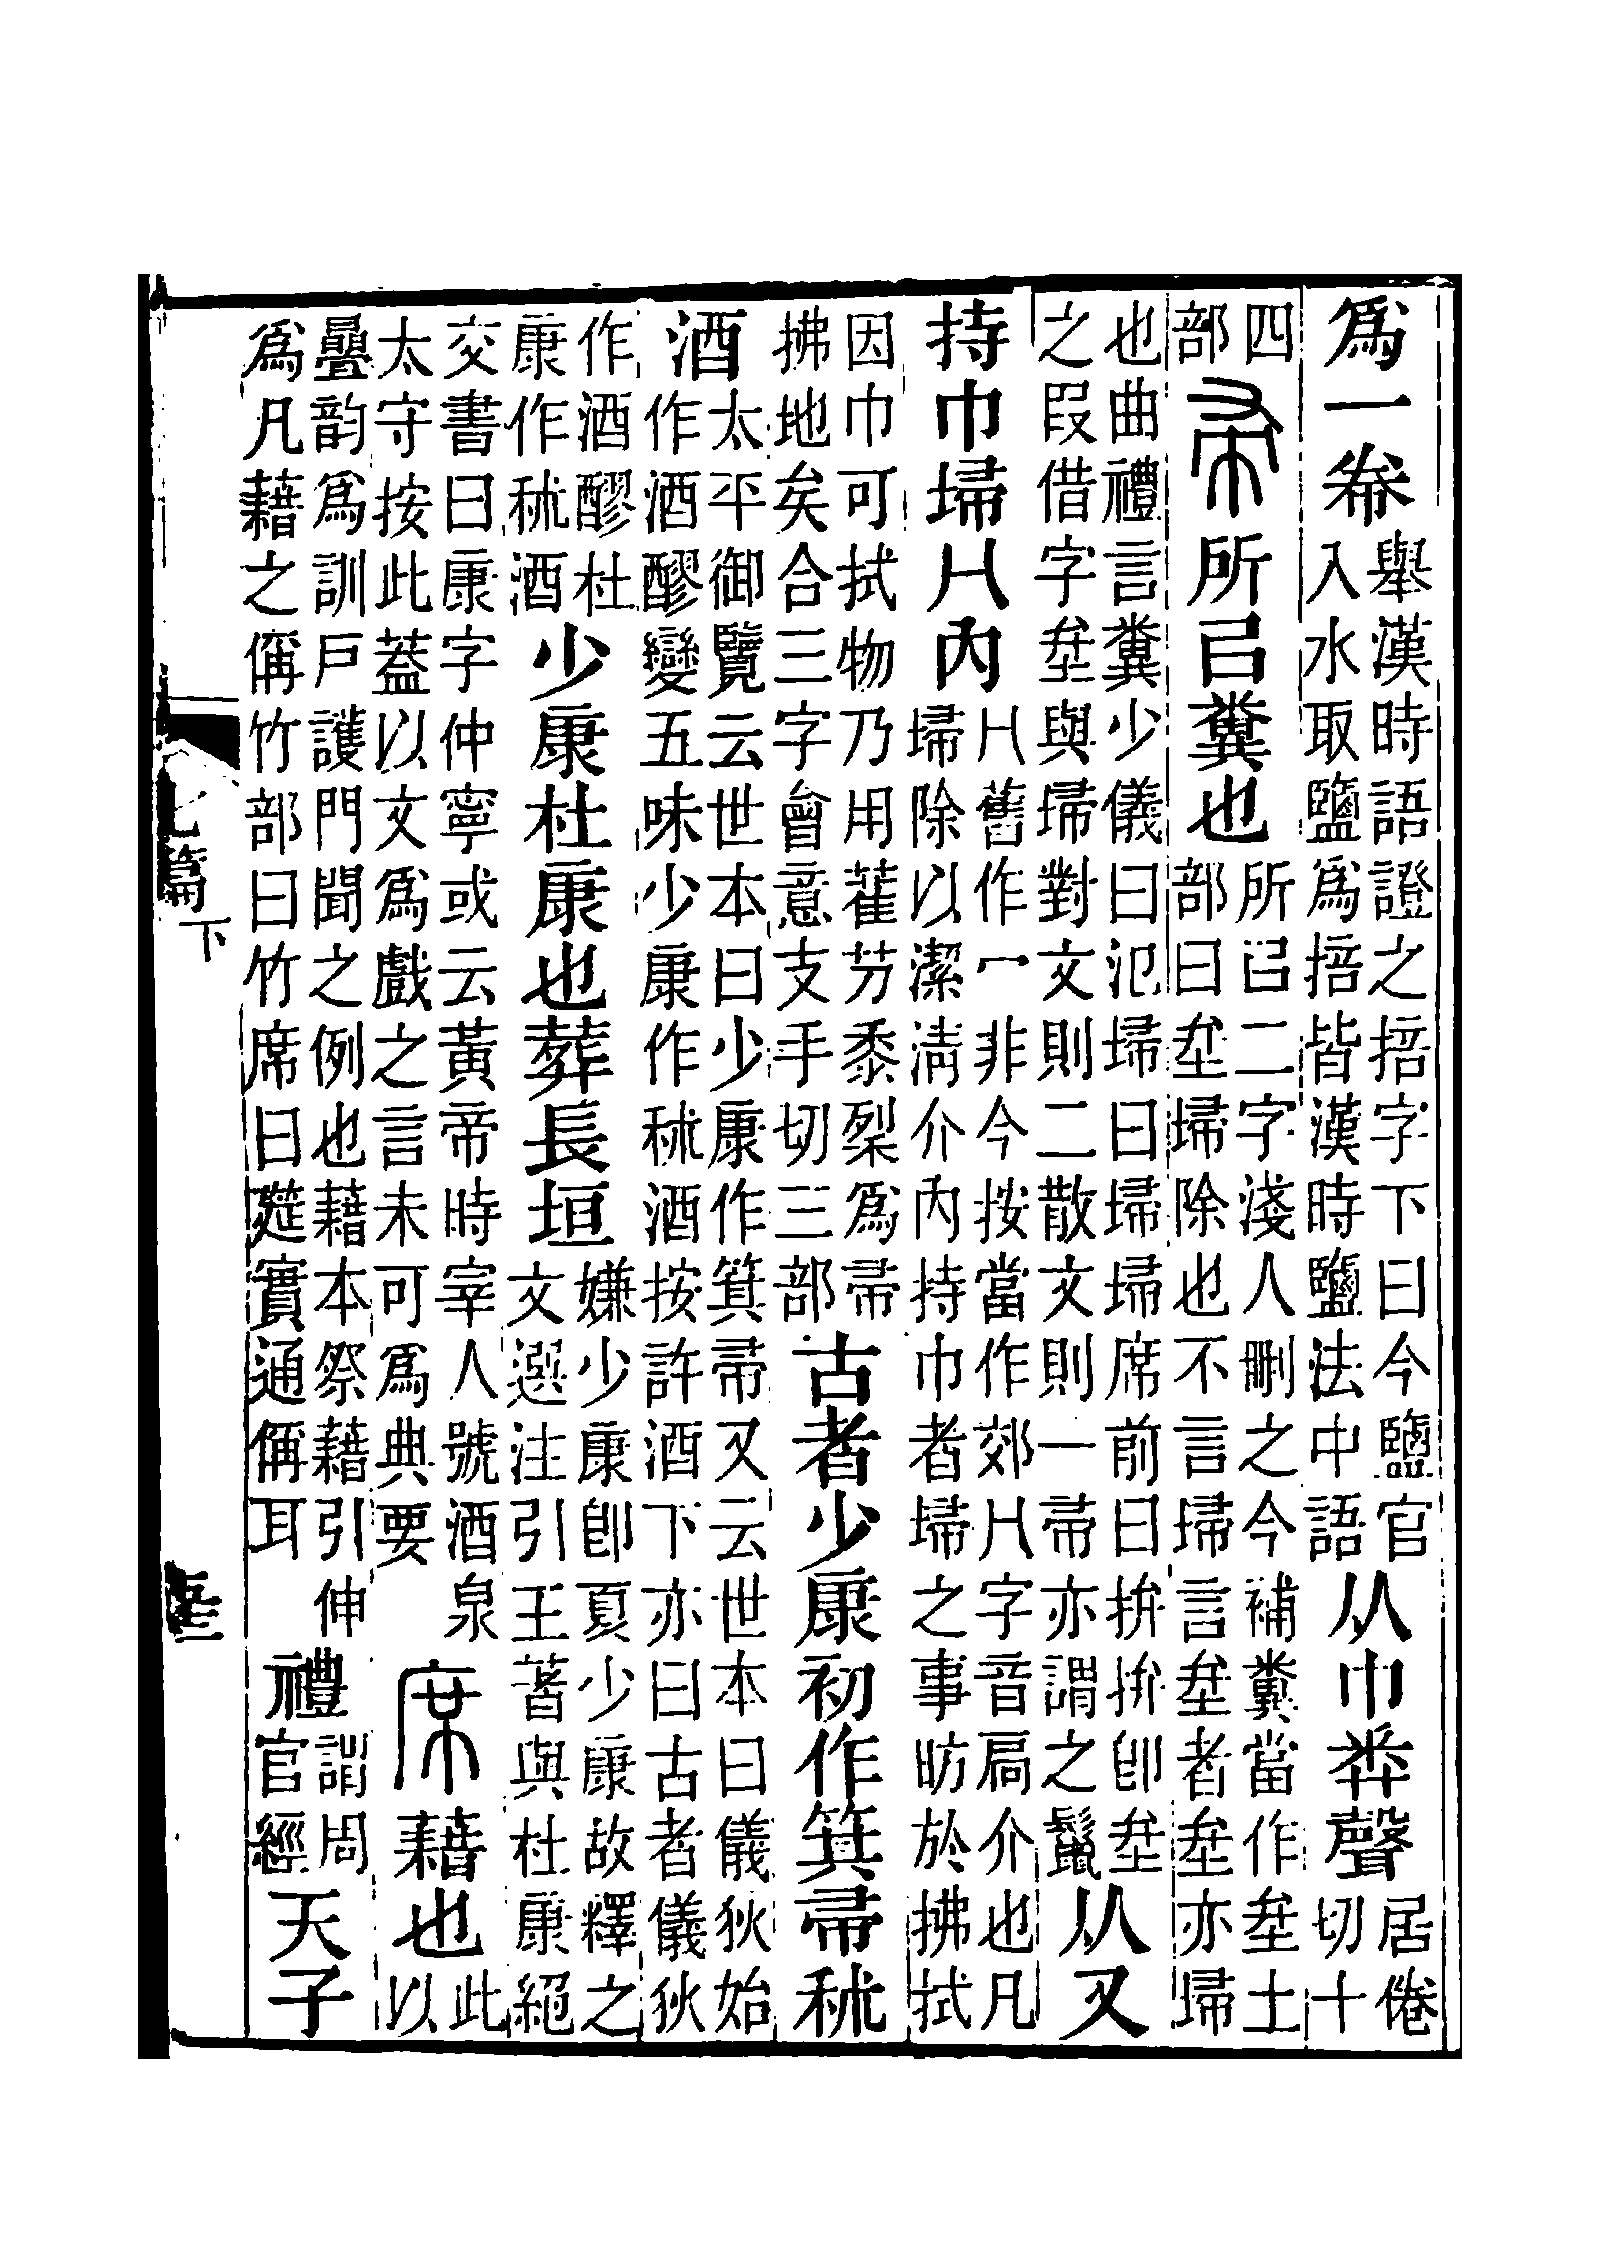 爲一帣
舉漢時語證之掊字下曰今鹽官
入水取鹽爲掊皆漢時鹽法中語
从巾𢍏聲
居倦
切十
四
部
帚
所㠯糞也
所㠯二字淺人刪之今補糞當作𡊄土
部曰𡊄埽除也不言埽言𡊄者𡊄亦埽
也曲禮言糞少儀曰氾埽曰埽埽席前曰拚拚卽𡊄
之叚借字𡊄與埽對文則二散文則一帚亦謂之鬣
从又
持巾埽冂內
冂舊作冖非今按當作郊冂字音扃介也凡
埽除以潔淸介內持巾者埽之事昉於拂拭
因巾可拭物乃用雚芀黍𥝧爲帚
拂地矣合三字會意支手切三部
古者少康初作箕帚秫
酒
太平御覽云世本曰少康作箕帚又云世本曰儀狄始
作酒醪變五味少康作秫酒按許酒下亦曰古者儀狄
作酒醪杜
康作秫酒
少康杜康也葬長垣
嫌少康卽夏少康故釋之
文選注引王著與杜康絕
交書曰康字仲寧或云黃帝時宰人號酒泉
太守按此葢以文爲戲之言未可爲典要
席
藉也
此
以
曡韵爲訓戶護門聞之例也藉本祭藉引伸
爲凡藉之偁竹部曰竹席曰筵實通偁耳
禮
謂周
官經
天子
七篇
下